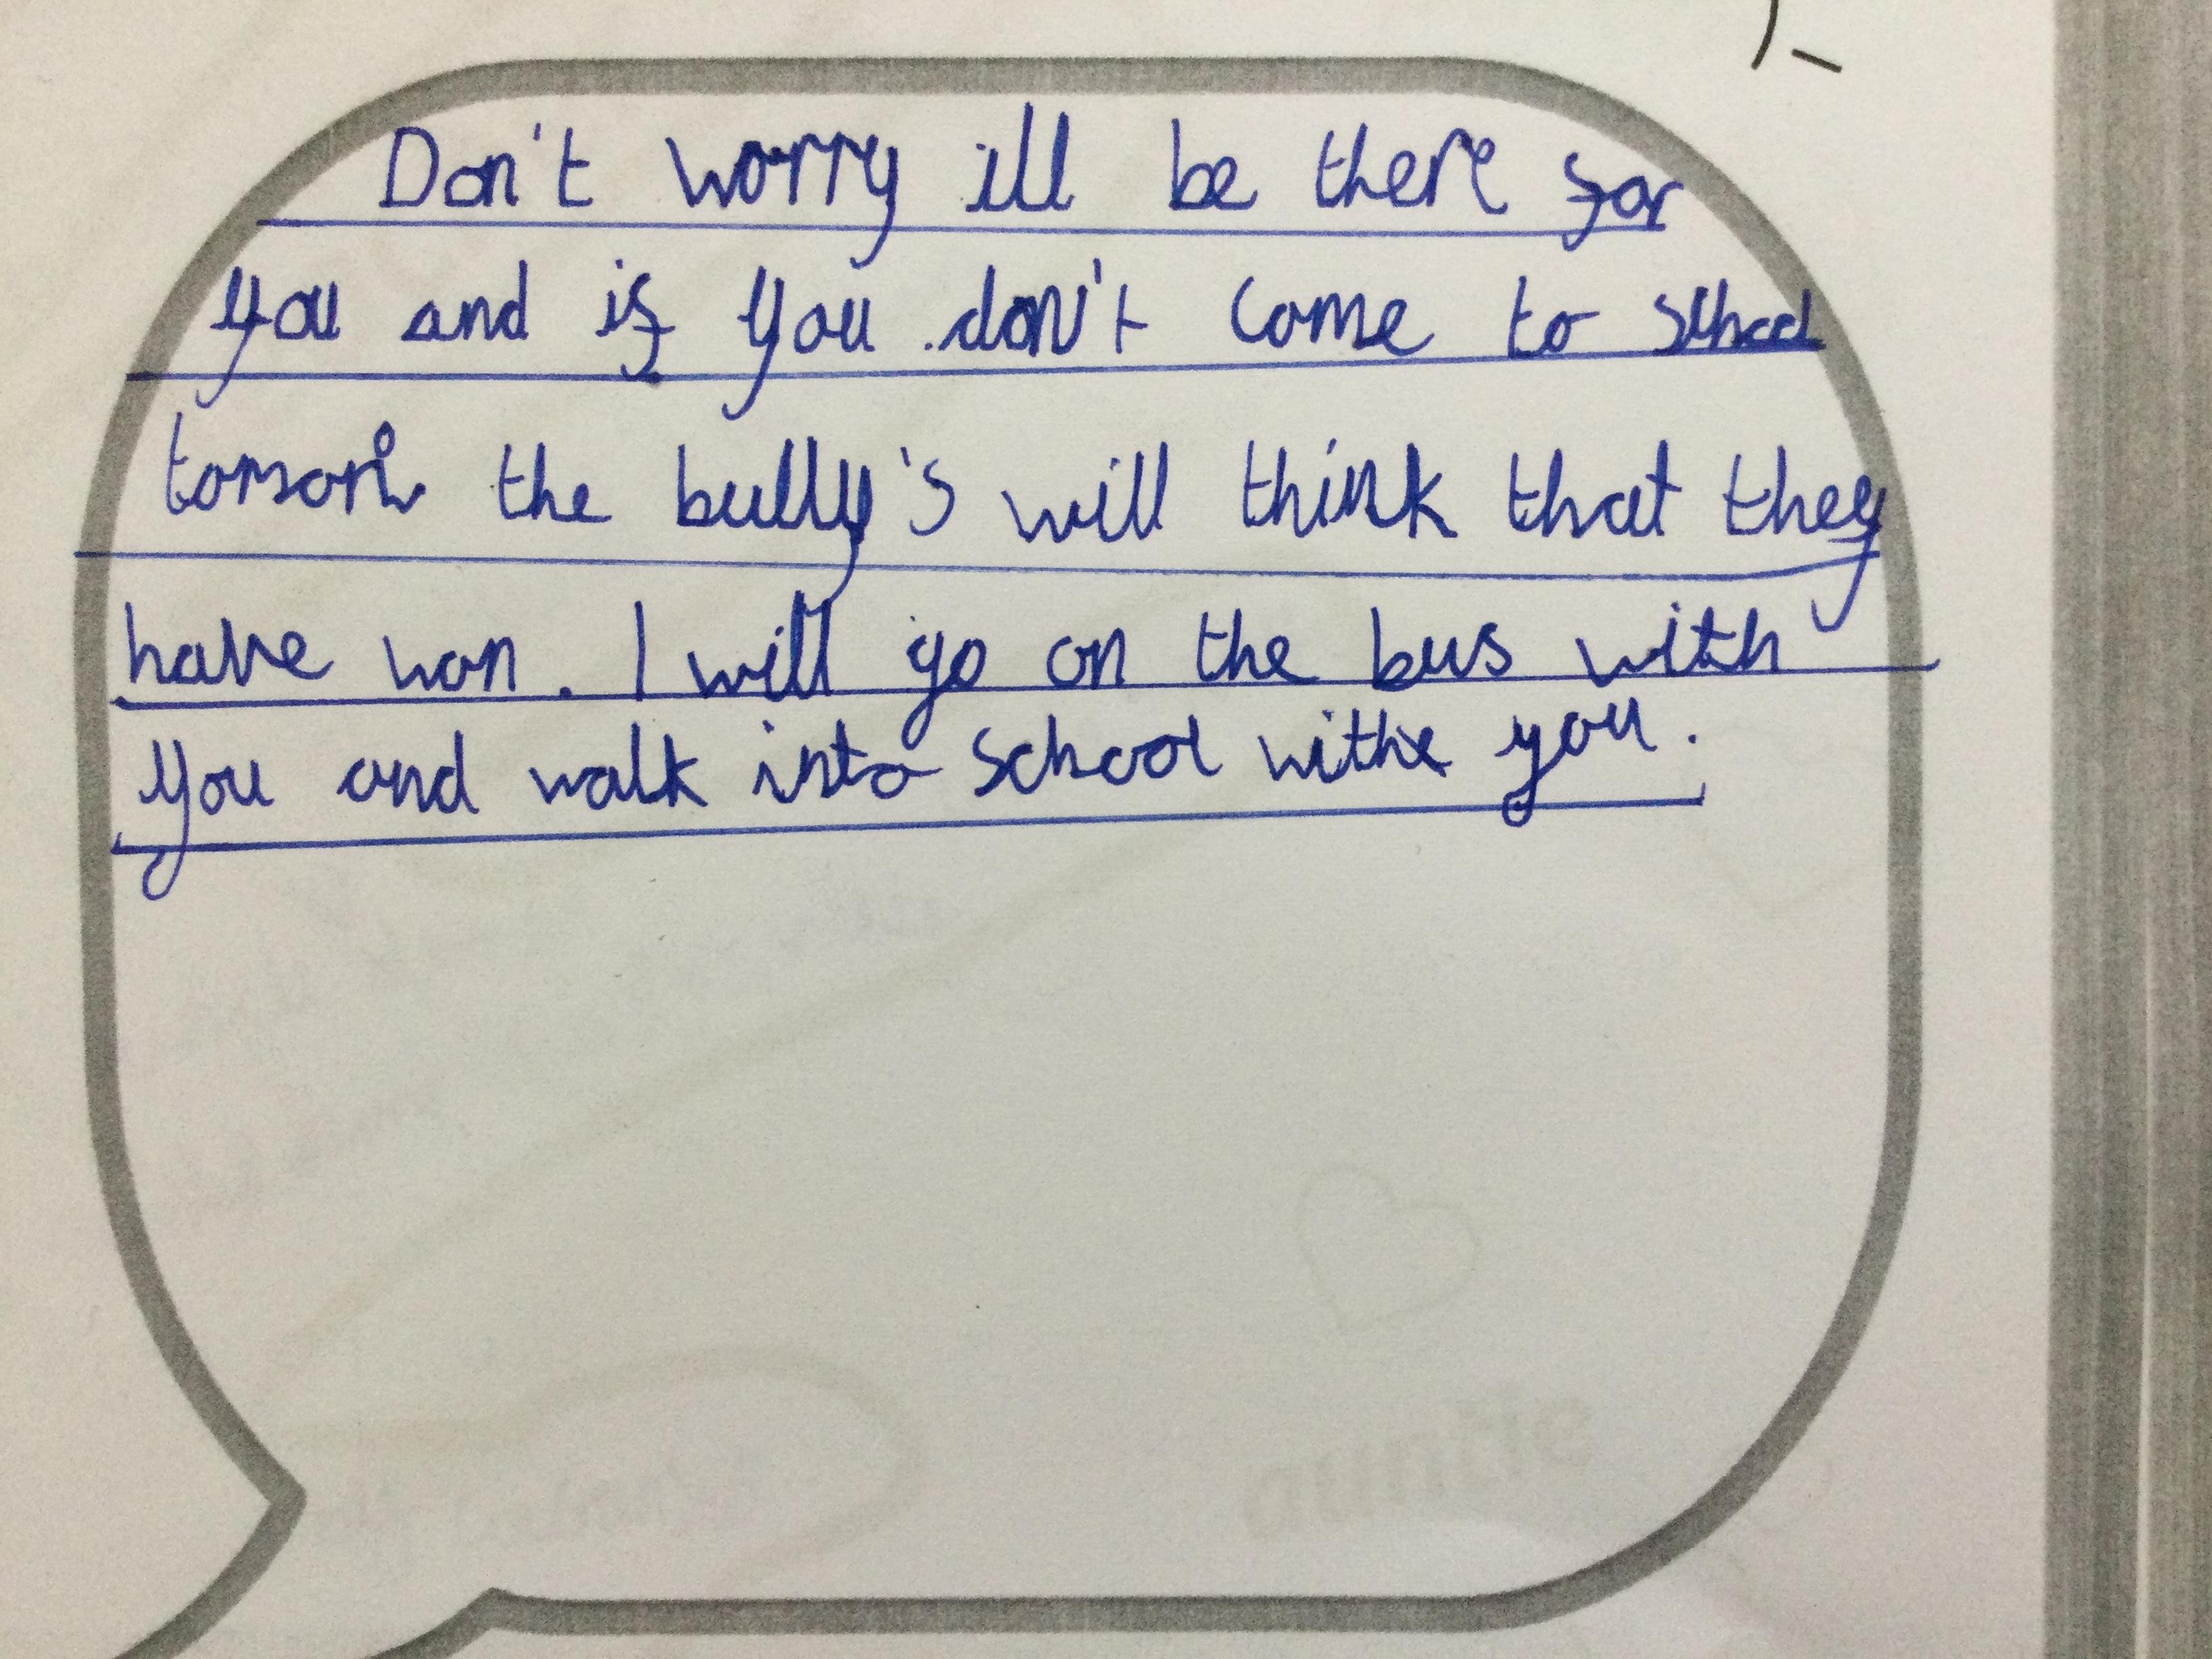 Don't worry ill be there for
you and if you don't come to school
tomorow the bully's will think that they
have won. I will go on the bus with
you and walk into school withe you.
auntie